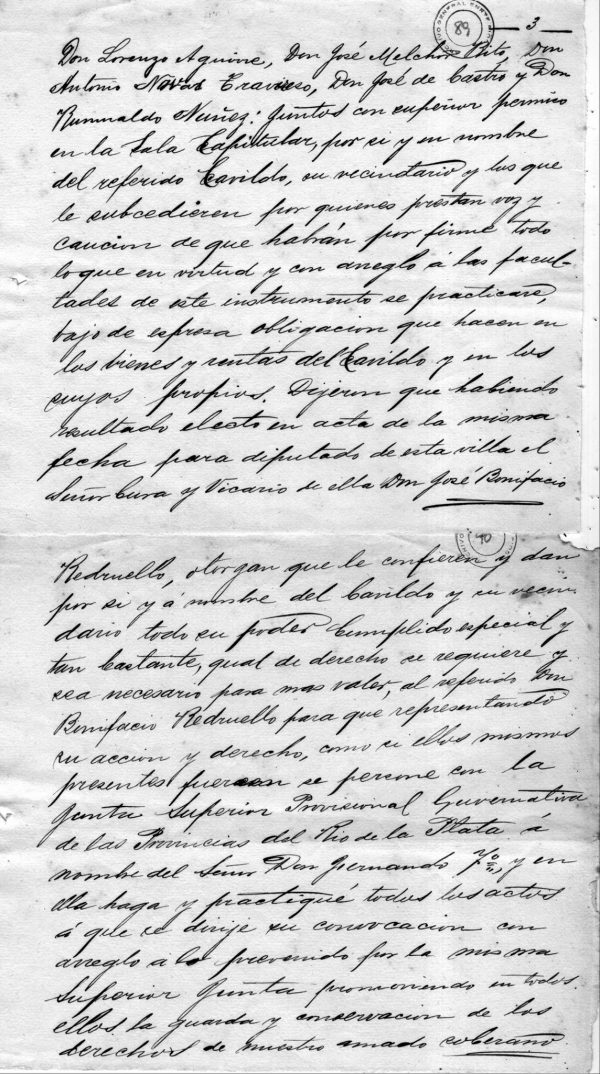 89
— 3 —
Don Lorenzo Aguirre, Don José Melchor Bito, Don
Antonio Navas Travieso, Don José de Castro y Don
Rumualdo Nuñez: juntos con superior permiso
en la Sala Capitular, por si y en nombre
del referido Cavildo, su vecindario y los que
le subcedieren por quienes prestan voz y
caucion de que habrán por firme todo
lo que en virtud y con arreglo á las facul-
tades de este instrumento se practicare,
bajo de espresa obligacion que hacen en
los bienes y rentas del Cavildo y en los
suyos propios. Dijeron que habiendo
resultado electo en acta de la misma
fecha para diputado de esta villa el
Señor Cura y Vicario de ella Don José Bonifacio
90
Redruello, otorgan que le confieren y dan
por si y á nombre del Cavildo y su vecin-
dario todo su poder Cumplido especial y
tan bastante, qual de derecho se requiere y
sea necesario para mas valer, al referido Don
Bonifacio Redruello para que representando
su accion y derecho, como si ellos mismos
presentes fuersen se persone con la
Junta Superior Provisional Guvernativa
de las Provincias del Rio de la Plata á
nombre del Señor Don Fernando 7º, y en
ella haga y practiqué todos los actos
á que se dirije su convocacion con
arreglo a lo prevenido por la misma
Superior Junta promoviendo en todos
ellos la guarda y conservacion de los
derechos de nuestro amado soberano